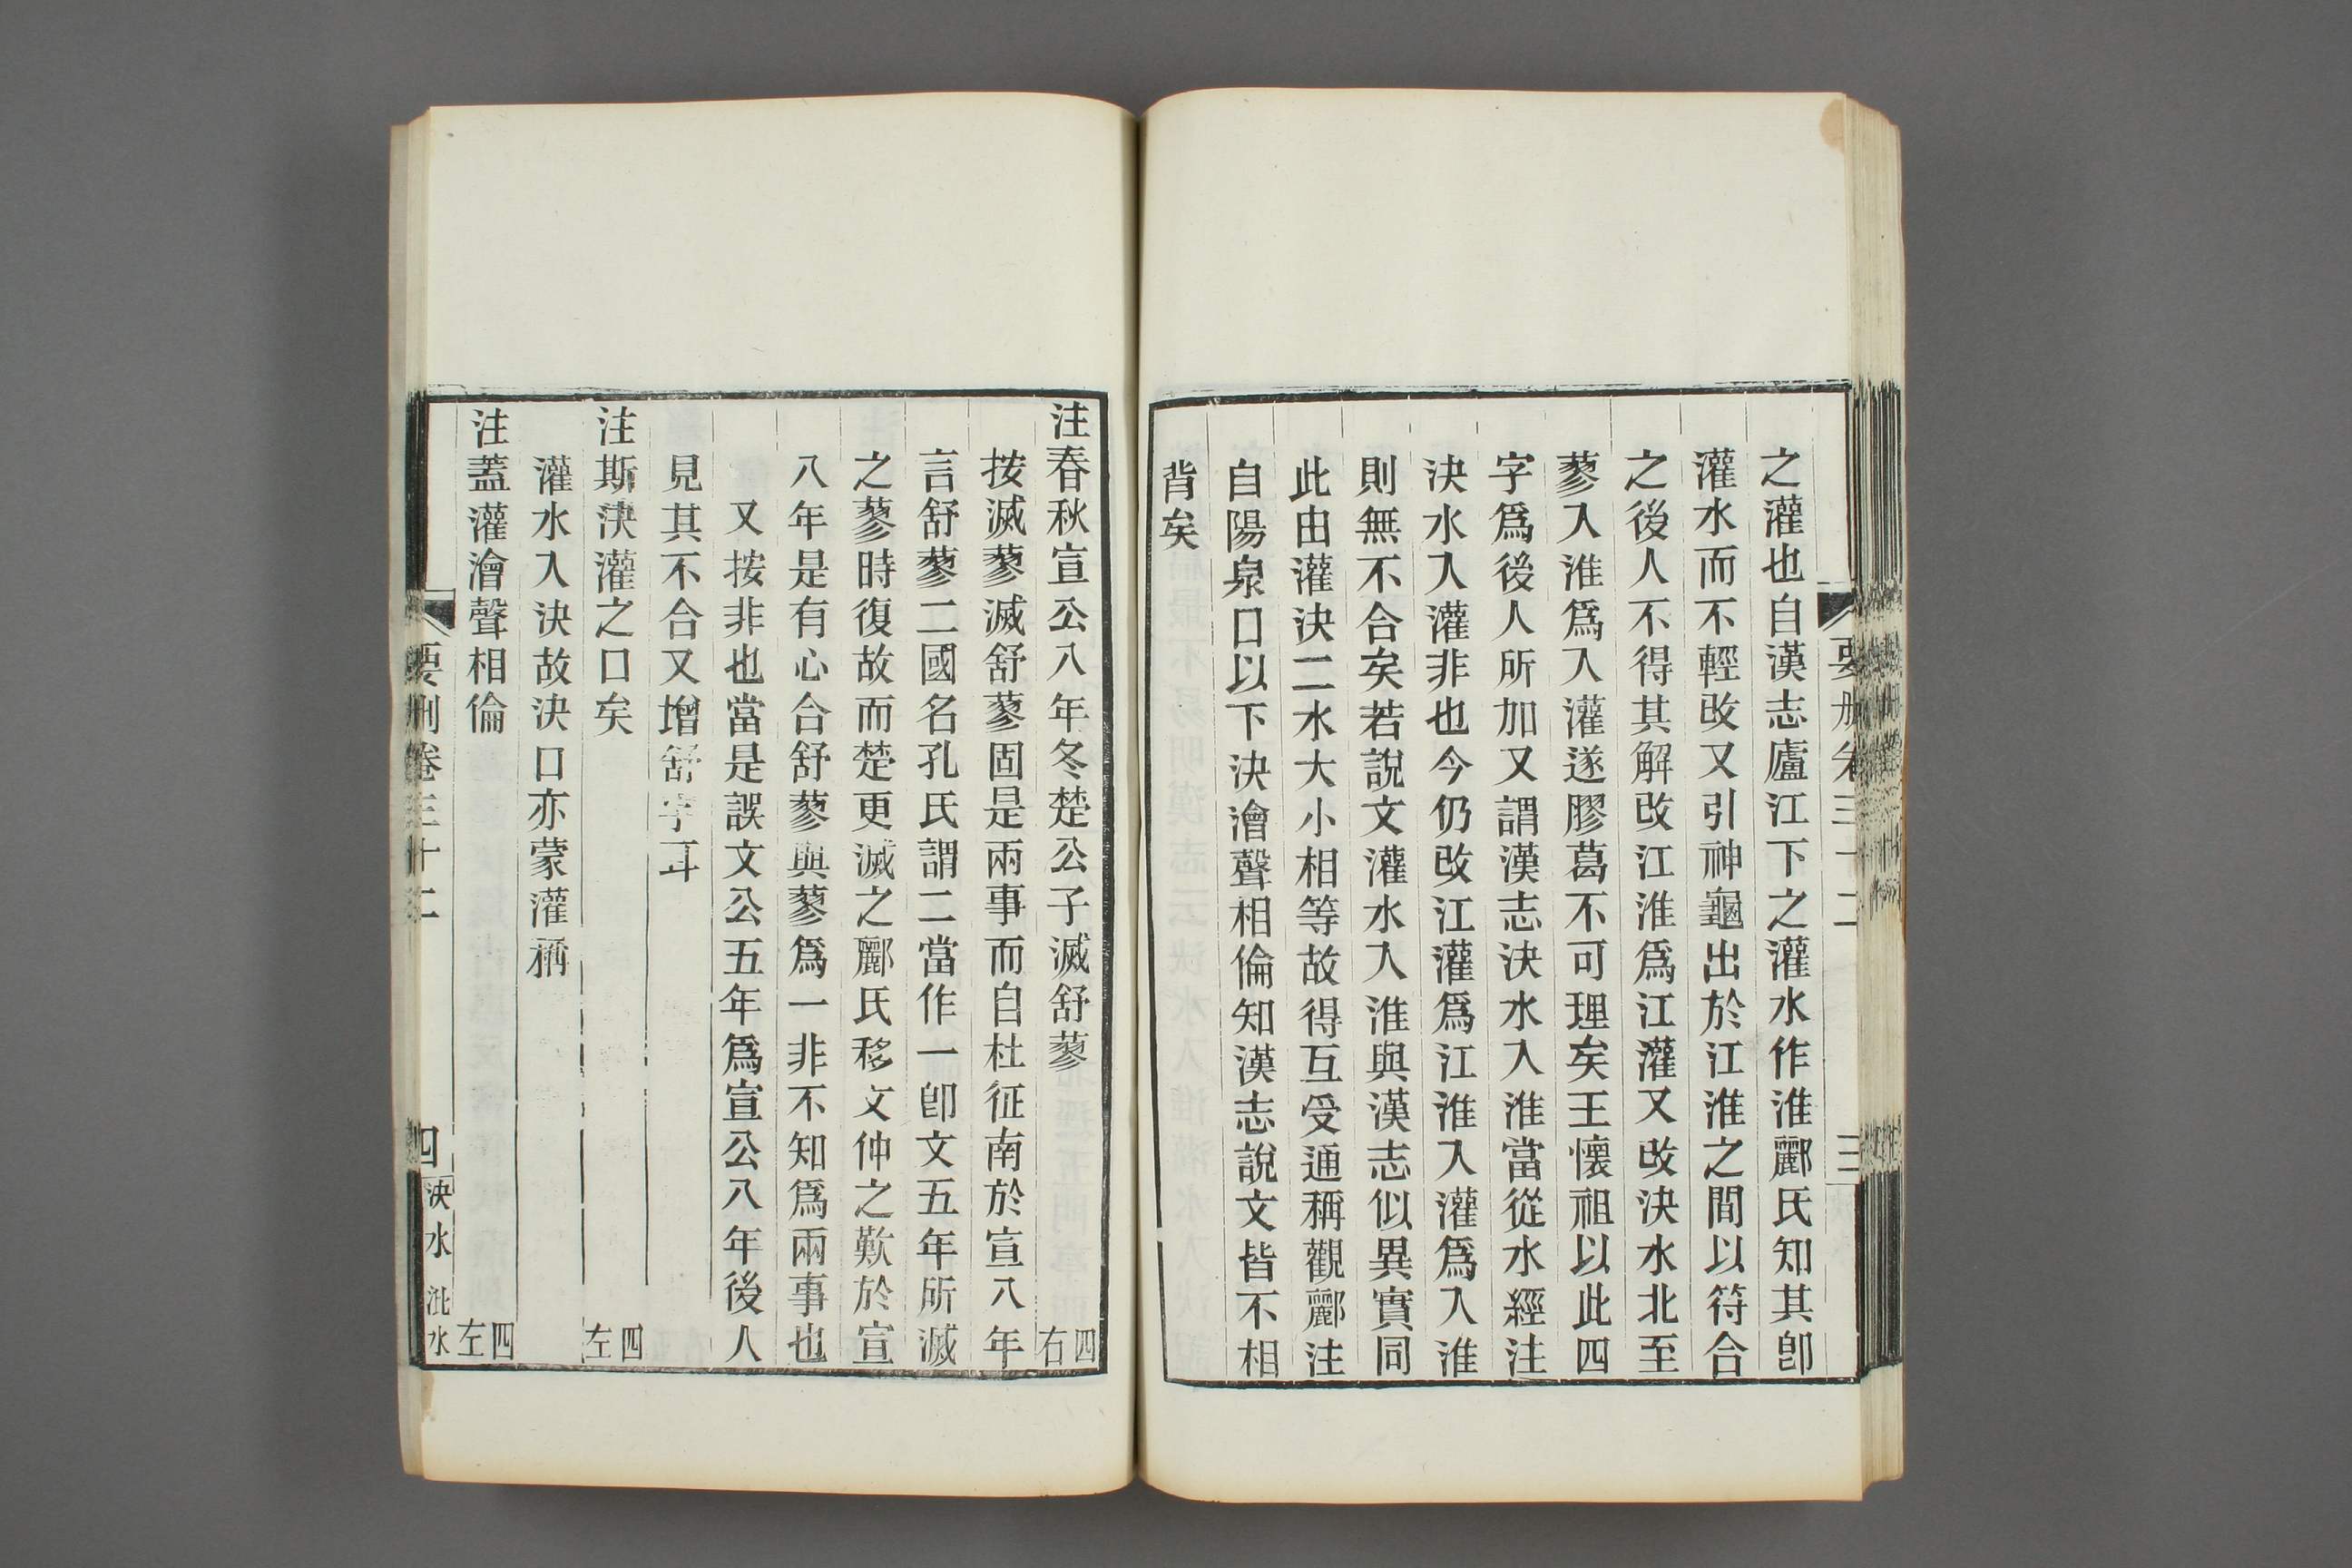 要刪卷三十二
三
之灌也自漢志廬江下之灌水作淮酈氏知其卽
灌水而不輕改又引神龜出於江淮之間以符合
之後人不得其解改江淮爲江灌又改決水北至
蓼入淮爲入灌遂膠葛不可理矣王懷祖以此四
字爲後人所加又謂漢志決水入淮當從水經注
決水入灌非也今仍改江灌爲江淮入灌爲入淮
則無不合矣若說文灌水入淮與漢志似異實同
此由灌決二水大小相等故得互受通稱觀酈注
自陽泉口以下決澮聲相倫知漢志說文皆不相
背矣
注春秋宣公八年冬楚公子滅舒蓼 四右
按滅蓼滅舒蓼固是兩事而自杜征南於宣八年
言舒蓼二國名孔氏謂二當作一卽文五年所滅
之蓼時復故而楚更滅之酈氏移文仲之歎於宣
八年是有心合舒蓼與蓼爲一非不知爲兩事也
又按非也當是誤文公五年爲宣公八年後人
見其不合又增舒字耳
注斯決灌之口矣 四左
灌水入決故決口亦蒙灌稱
注蓋灌澮聲相倫 四左
要刪卷三十二
四
決水 沘水